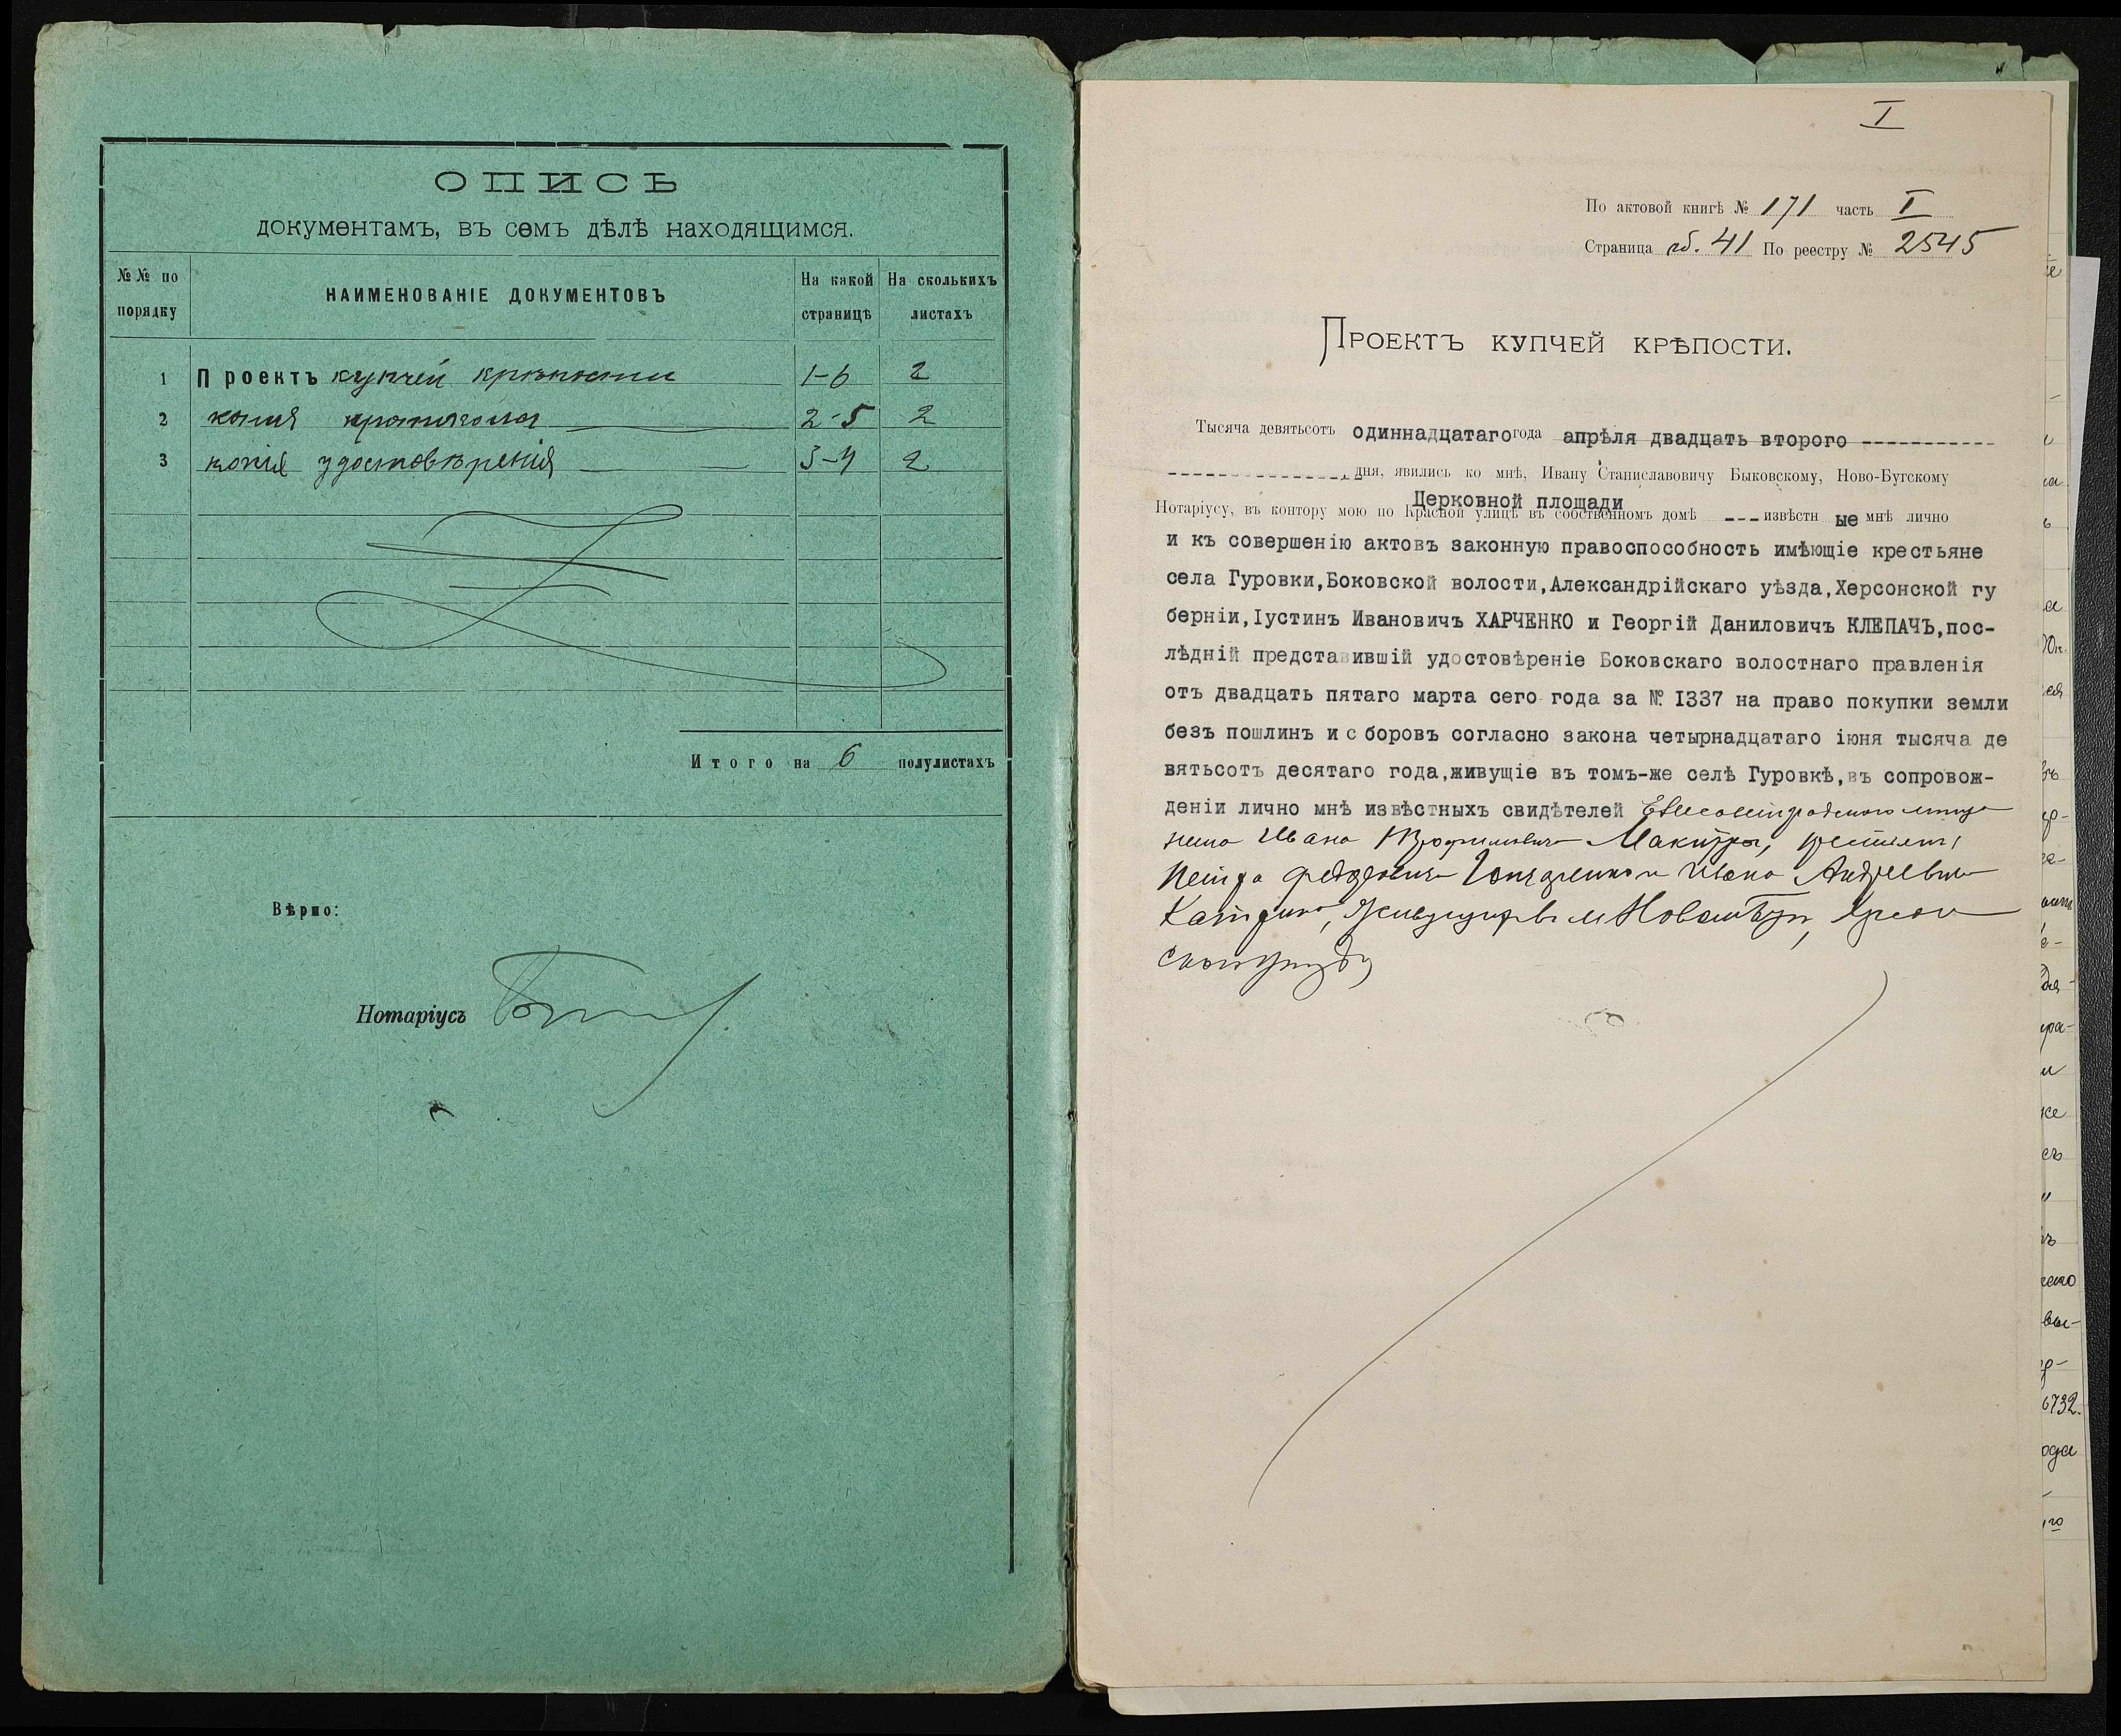 ОПИСЬ
документамъ, въ семъ дѣлѣ находящимся.
№№ по порядку
НАИМЕНОВАНІЕ ДОКУМЕНТОВЪ
На какой страницѣ
На сколькихъ листахъ
1 Проектъ купчей крѣпости 1-6 2
2 копія 2-5 2
3 копія удостовѣренія 3-4 2
Итого на 6 полулистахъ
Вѣрно:
Нотаріусъ
I
По актовой книгѣ № 171 часть I
Страница об. 41 По реестру № 2545
Проектъ купчей крѣпости.
Тысяча девятьсотъ одиннадцатаго года апрѣля двадцать второго -----------
-----------------, дня, явились ко мнѣ, Ивану Станиславовичу Быковскому, Ново-Бугскому
Церковной площади
Нотаріусу, въ контору мою по Красной улицѣ въ собственномъ домѣ --- извѣстн ые мнѣ лично
и къ совершенію актовъ законную правоспособность имѣющіе крестьяне
села Гуровки,Боковской волости,Александрійскаго уѣзда,Херсонской гу
берніи,Іустинъ Ивановичъ ХАРЧЕНКО и Георгій Даниловичъ КЛЕПАЧЪ,пос-
лѣдній представившій удостовѣреніе Боковскаго волостнаго правленія
отъ двадцать пятаго марта сего года за № I337 на право покупки земли
безъ пошлинъ и с боровъ согласно закона четырнадцатаго іюня тысяча де
вятьсотъ десятаго года,живущіе въ томъ-же селѣ Гуровкѣ,въ сопровож-
деніи лично мнѣ извѣстныхъ свидѣтелей Елисаветградского мѣща
нина Ивана Макитры,
Петра Ивана Андреевича
6732.